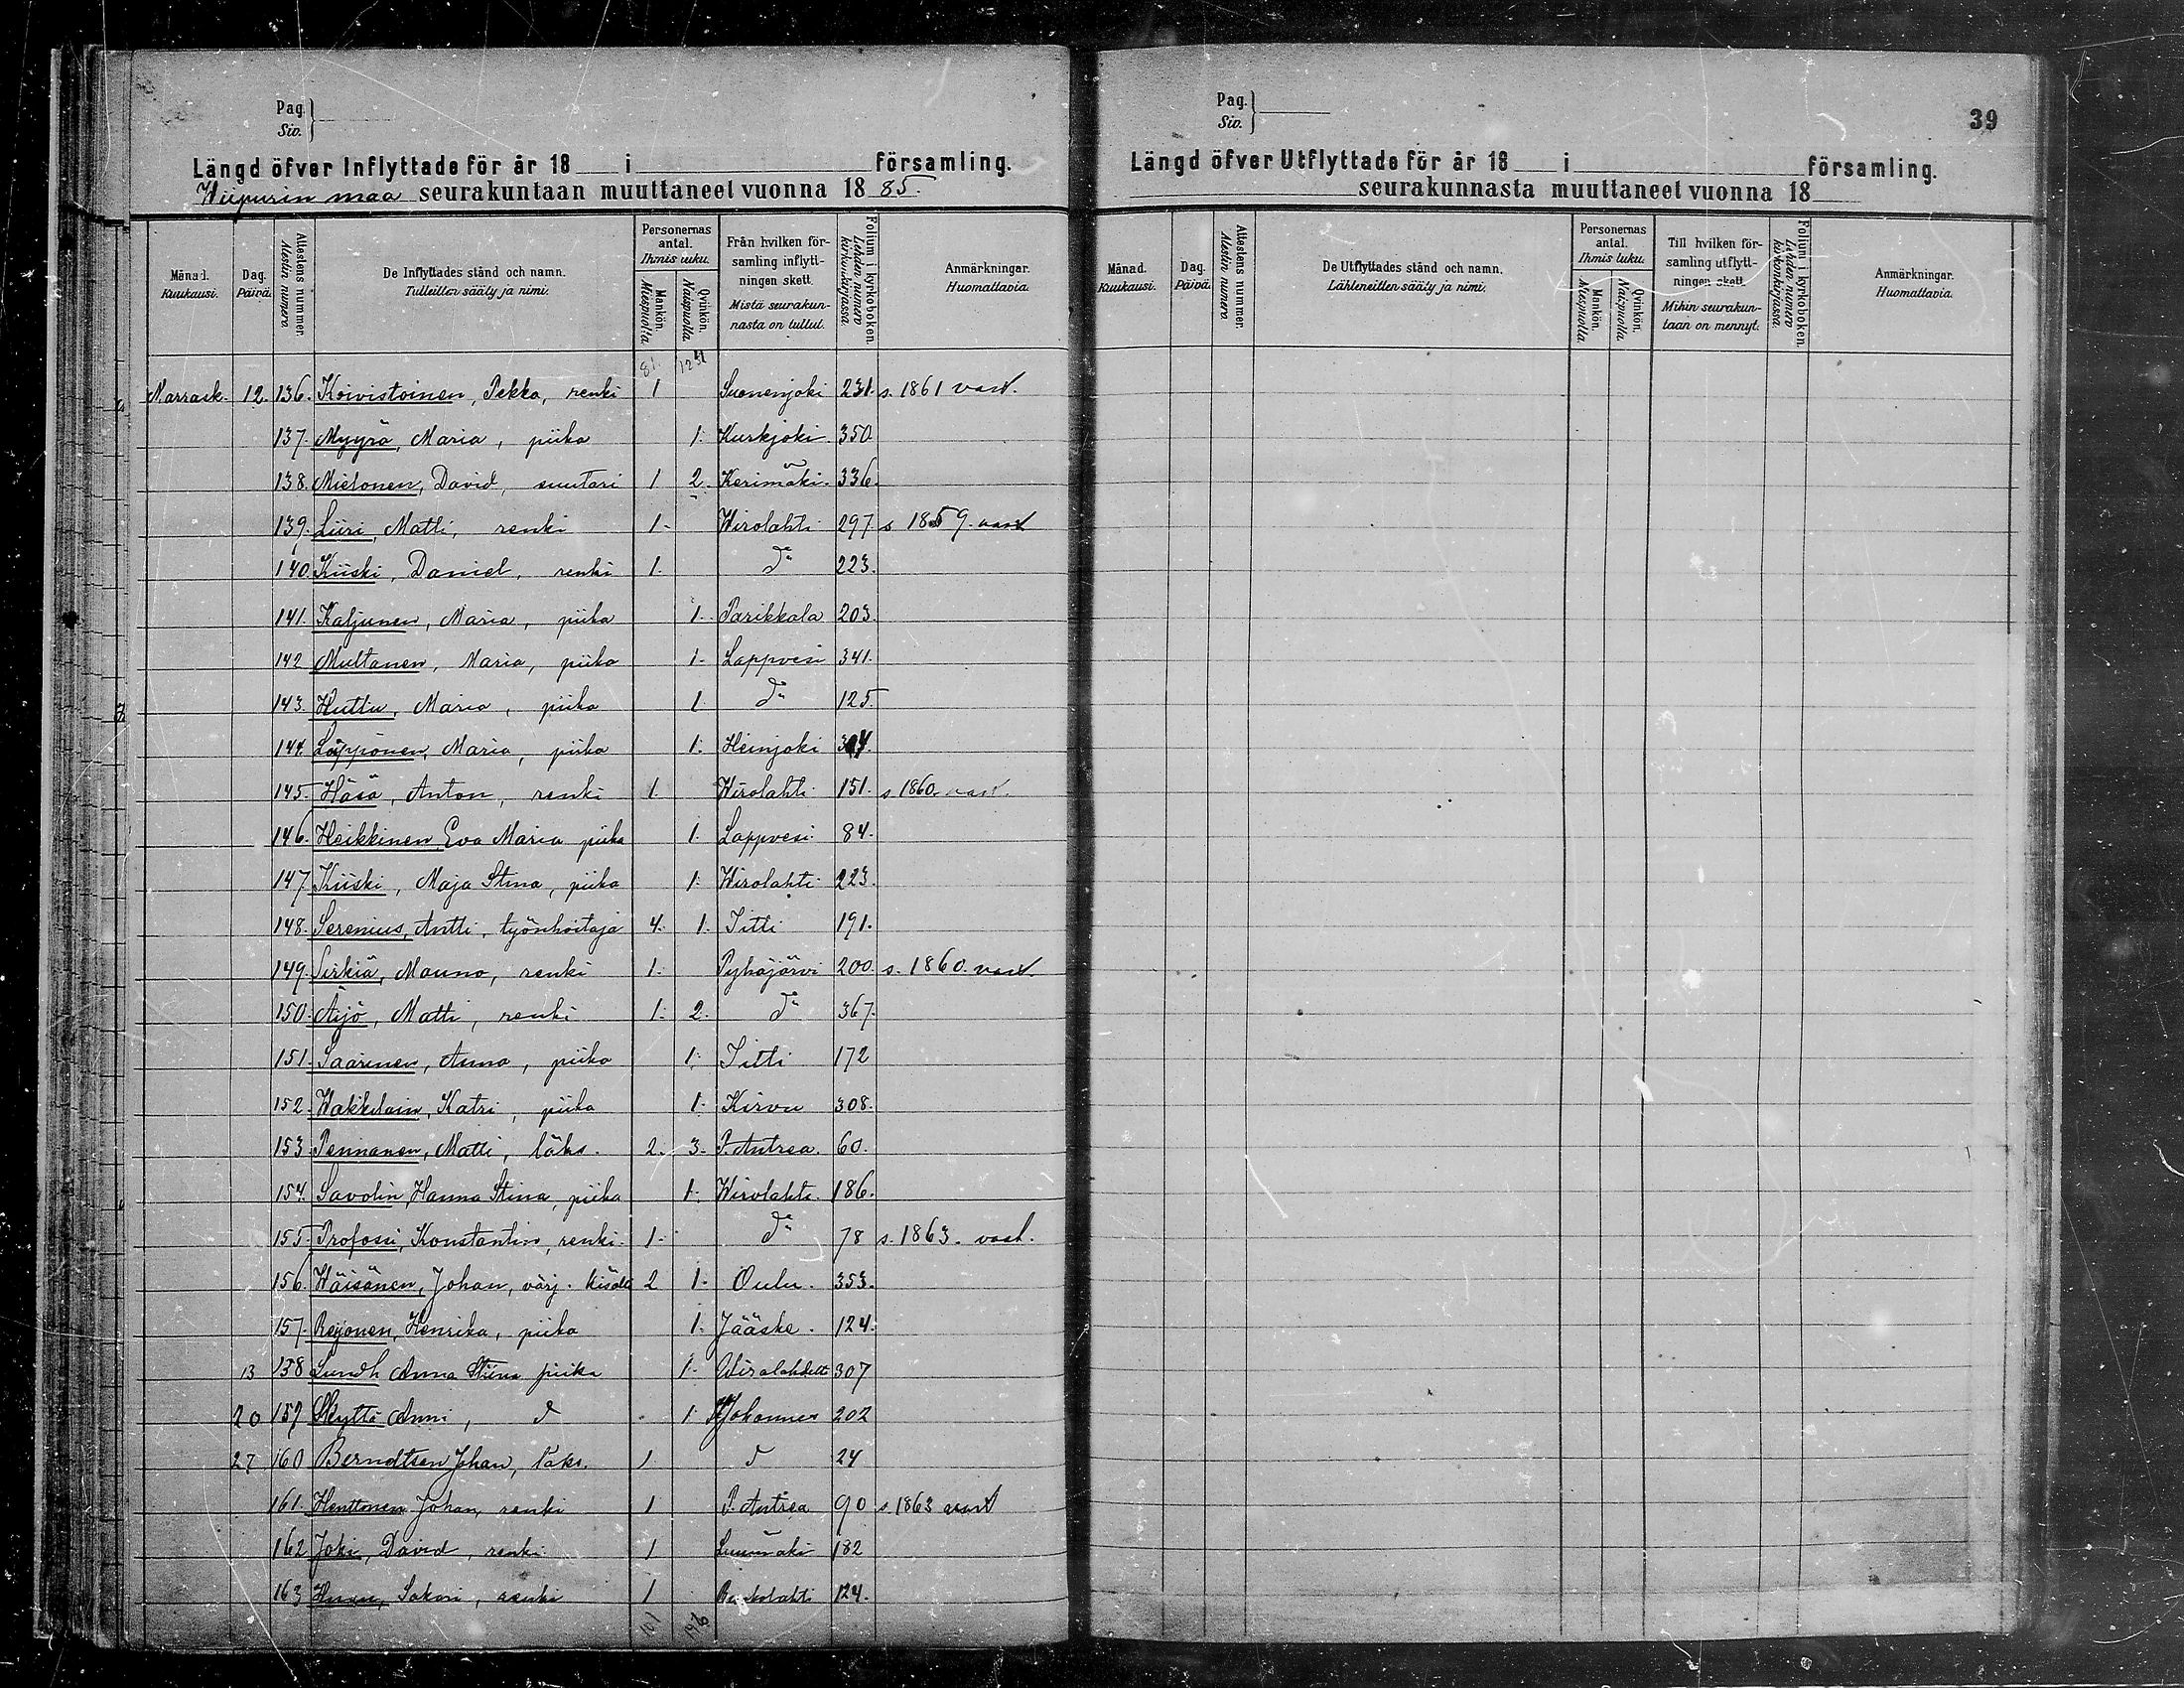 Pag.
Siv.
Längd öfver Inflyttade för år 18 i församling.
Wiipurin maa seurakuntaan muuttaneet vuonna 18 85.
Månad. Kuukausi.
Dag. Päivä.
Attestens nummer. Alestin numero
De Inflyttades stånd och namn. Tulleitten sääty ja nimi.
Personernas antal. Ihmis luku.
Mankön. Miespuolta.
Qvinkön. Naispuolta.
Från hvilken församling inflyttningen skett. Mistä seurakunnasta on tullut.
Folium i kyrkoboken. Lehden numero kirkonkirjassa.
Anmärkningar. Huomattavia.
81. 124
Marrask. 12. 136. Koivistoinen, Pekka, renki 1 Suonenjoki 231. s. 1861 vast.
137. Myyrä, Maria, piika 1. Kurkjoki 350
138. Mielonen, David, suutari 1 2. Kerimäki. 336.
139. Liiri, Matti, renki 1. Wirolahti 297. s 1859. vast
140. Kiiski, Daniel, renki 1. d:o 223.
141. Kaljunen, Maria, piika 1. Parikkala 203.
142 Multanen, Maria, piika 1. Lappvesi 341.
143. Huttu, Maria, piika 1 d:o 125.
144. Läppönen, Maria, piika 1. Heinjoki
145. Häsä, Anton, renki 1. Wirolahti 151. s 1860. vast.
146. Heikkinen Eva Maria piika 1. Lappvesi 84.
147. Kiiski, Maja Stina, piika 1. Wirolahti 223.
148. Serenius, Antti, työnhoitaja 4. 1. Iitti 191.
149. Sirkiä, Mauno, renki 1. Pyhäjärvi 200. s. 1860. vast.
150. Äijö, Matti, renki 1. 2. d:o 367.
151. Saarinen, Anna, piika 1. Iitti 172
152. Wakkilain, Katri, piika 1. Kirvu 308.
153. Pennanen, Matti, läks. 2. 3. P. Antrea. 60.
154. Savolin, Hanna Stina, piika 1. Wirolahti. 186.
155. Profossi, Konstantin, renki. 1. d:o 78 s. 1863. vast.
156. Wäisänen, Johan, värj. kisälli 2 1. Oulu. 353.
157. Reijonen, Henrika, piika 1. Jääske. 124.
13 158 Lundh Anna Stina piika 1. Wirolahdelta 307
20 159 Skyttä Anni, d 1 Johannes 202
27 160 Berndtsen Johan, läks. 1 d 24
161. Henttonen Johan, renki 1 P. Antrea 90 s. 1863 vast
162 Joki, David, renki 1 Luumäki 182
163 Sakari, renki 1 Ruokolahti 124.
101 146
Pag.
Siv.
39
Längd öfver Utflyttade för år 18 i församling.
seurakunnasta muuttaneet vuonna 18
Månad. Kuukausi.
Dag. Päivä.
Attestens nummer. Alestin numero
De Utflyttades stånd och namn. Lähteneitten sääty ja nimi.
Personernas antal. Ihmis luku.
Mankön. Miespuolta
Qvinkön. Naispuolta
Till hvilken församling utflyttningen skett. Mihin seurakuntaan on mennyt.
Folium i kyrkoboken. Lehden numero kirkonkirjassa.
Anmärkningar. Huomattavia.